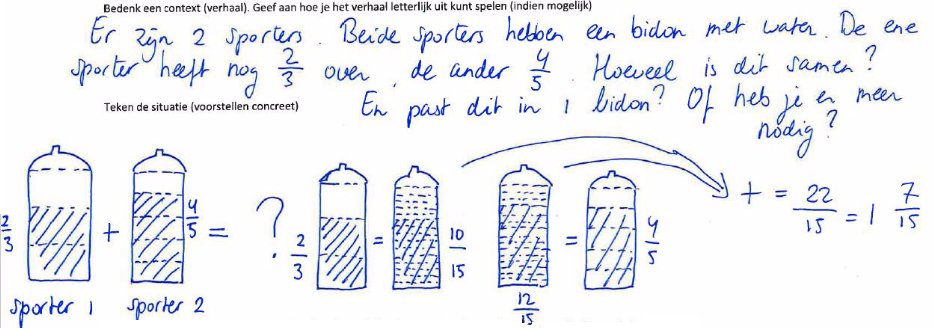 Bedenk een context (verhaal). Geef aan hoe je het verhaal letterlijk uit kunt spelen (indien mogelijk)
Er zijn 2 sporters. Beide sporters hebben een bidon met water. De ene
sporter heeft nog 2/3 over, de ander 4/5. Hoeveel is dit samen?
En past dit in 1 bidon? Of heb je er meer
nodig?
Teken de situatie (voorstellen concreet)
2/3 + 4/5 = ? 2/3 = 10/15 12/15 = 4/5 + = 22/15 = 1 7/15
sporter 1 sporter 2